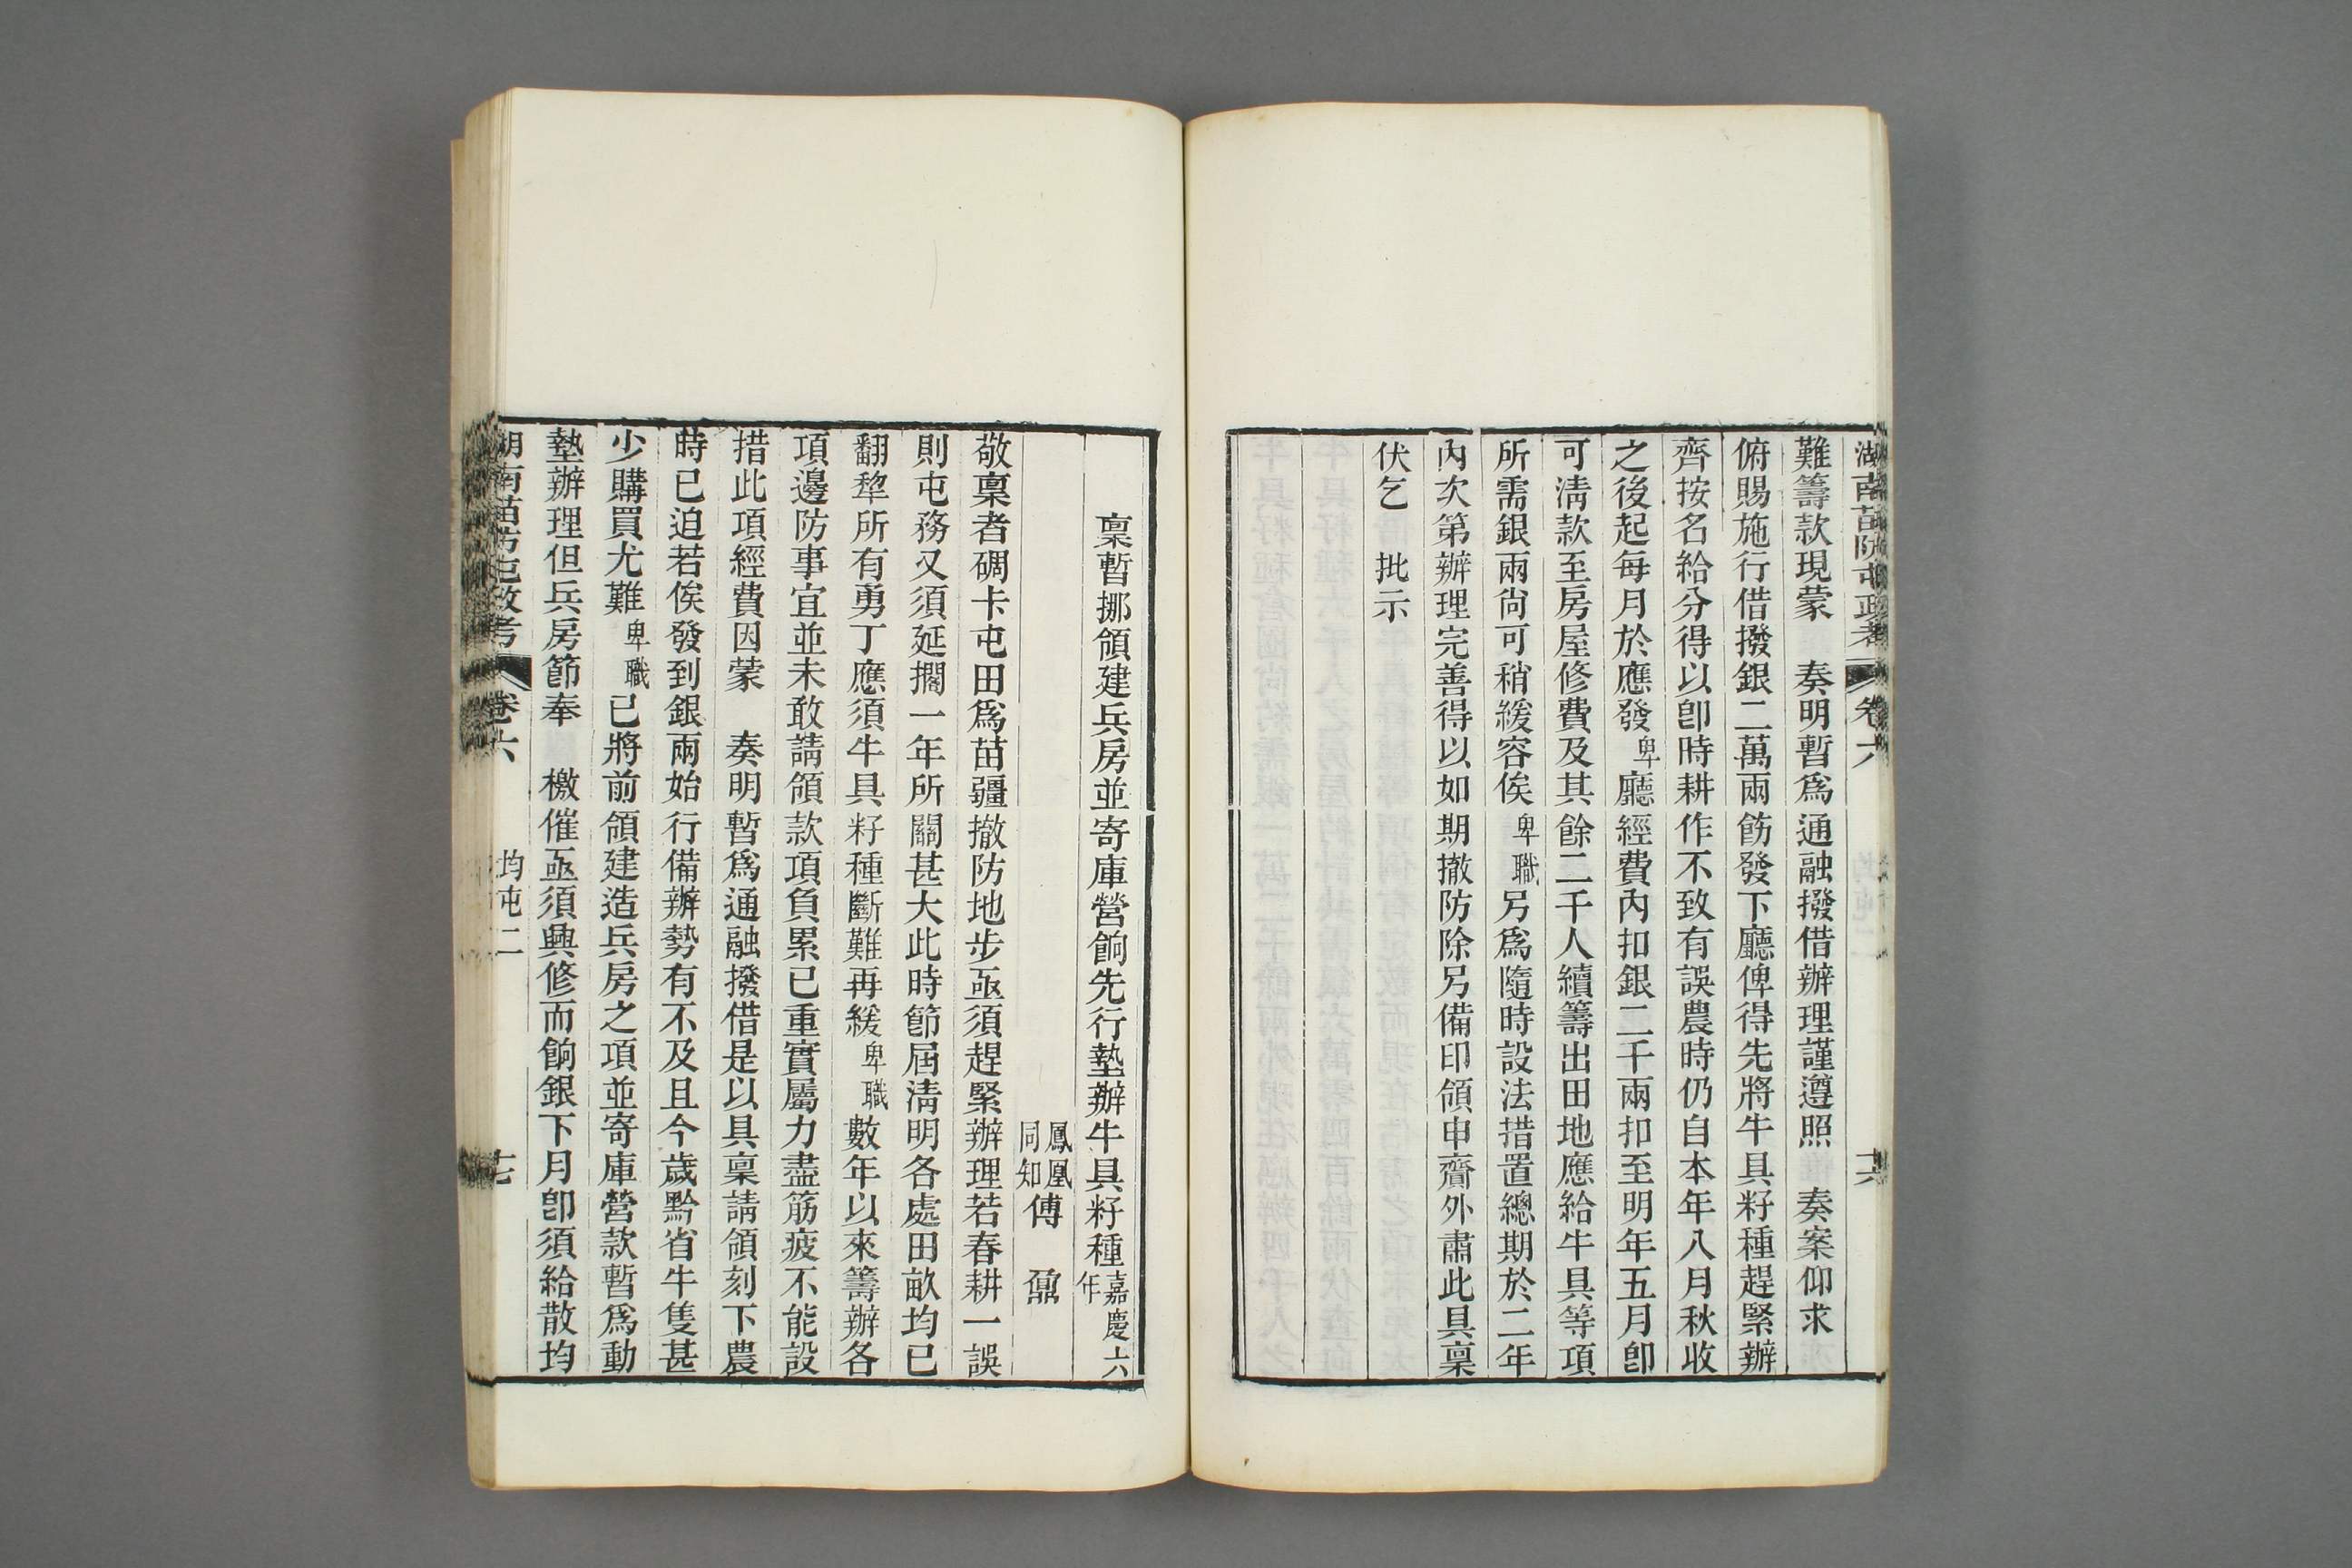 湖南苗防屯政考 卷六 十六
難籌款現蒙 奏明暫爲通融撥借辦理謹遵照 奏案仰求
俯賜施行借撥銀二萬兩飭發下廳俾得先將牛具籽種趕緊辦
齊按名給分得以卽時耕作不致有誤農時仍自本年八月秋收
之後起每月於應發卑廳經費內扣銀二千兩扣至明年五月卽
可淸款至房屋修費及其餘二千人續籌出田地應給牛具等項
所需銀兩尙可稍緩容俟卑職另爲隨時設法措置總期於二年
內次第辦理完善得以如期撤防除另備印領申齎外肅此具稟
伏乞 批示
稟暫挪領建兵房並寄庫營餉先行墊辦牛具籽種嘉慶六年
鳳凰同知傅 鼐
敬稟者碉卡屯田爲苗疆撤防地步亟須趕緊辦理若春耕一誤
則屯務又須延擱一年所關甚大此時節屆淸明各處田畝均已
翻犂所有勇丁應須牛具籽種斷難再緩卑職數年以來籌辦各
項邊防事宜並未敢請領款項負累已重實屬力盡筋疲不能設
措此項經費因蒙 奏明暫爲通融撥借是以具稟請領刻下農
時已迫若俟發到銀兩始行備辦勢有不及且今歲黔省牛隻甚
少購買尤難卑職已將前領建造兵房之項並寄庫營款暫爲動
墊辦理但兵房節奉 檄催亟須興修而餉銀下月卽須給散均
湖南苗防屯政考 卷六 均屯二 十七